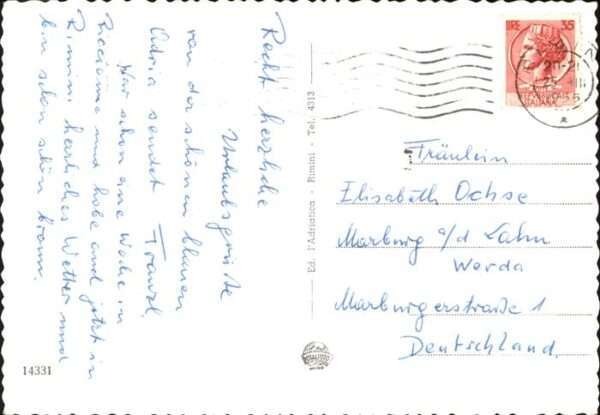 Recht herzliche
Urlaubsgrüße
von der schönen blauen
Adria sendet Traudl.
War schon eine Woche in
Riccione und habe auch jetzt in
Rimini herrliches Wetter und
bin schon schön braun.
Ed. l'Adriatica - Rimini - Tel. 4313
LIRE 35
Fräulein
Elisabeth Ochse
Marburg a/d Lahn
Werda
Marburgerstraße 1
Deutschland.
14331